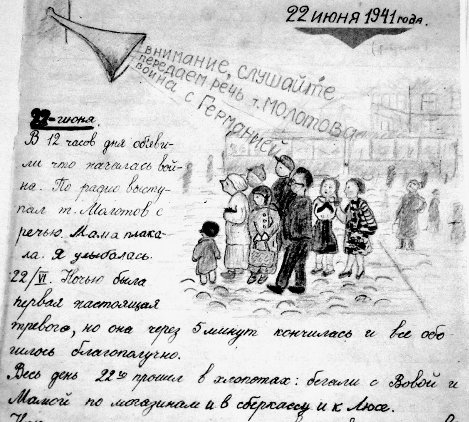 22 ИЮНЯ 1941 года.
ВНИМАНИЕ, СЛУШАЙТЕ
ПЕРЕДАЕМ РЕЧЬ т. МОЛОТОВА
ВОЙНА С ГЕРМАНИЕЙ
22-июня.
В 12 часов дня объяви-
ли что началась вой-
на. По радио высту-
пал т. Молотов с
речью. Мама плака-
ла. Я улыбалась.
22/VI. Ночью была
первая настоящая
тревога, но она через 5 минут кончилась и все обо
шлось благополучно.
Весь день 22го прошел в хлопотах: бегали с Вовой и
Мамой по магазинам и в сберкассу и к Люсе.